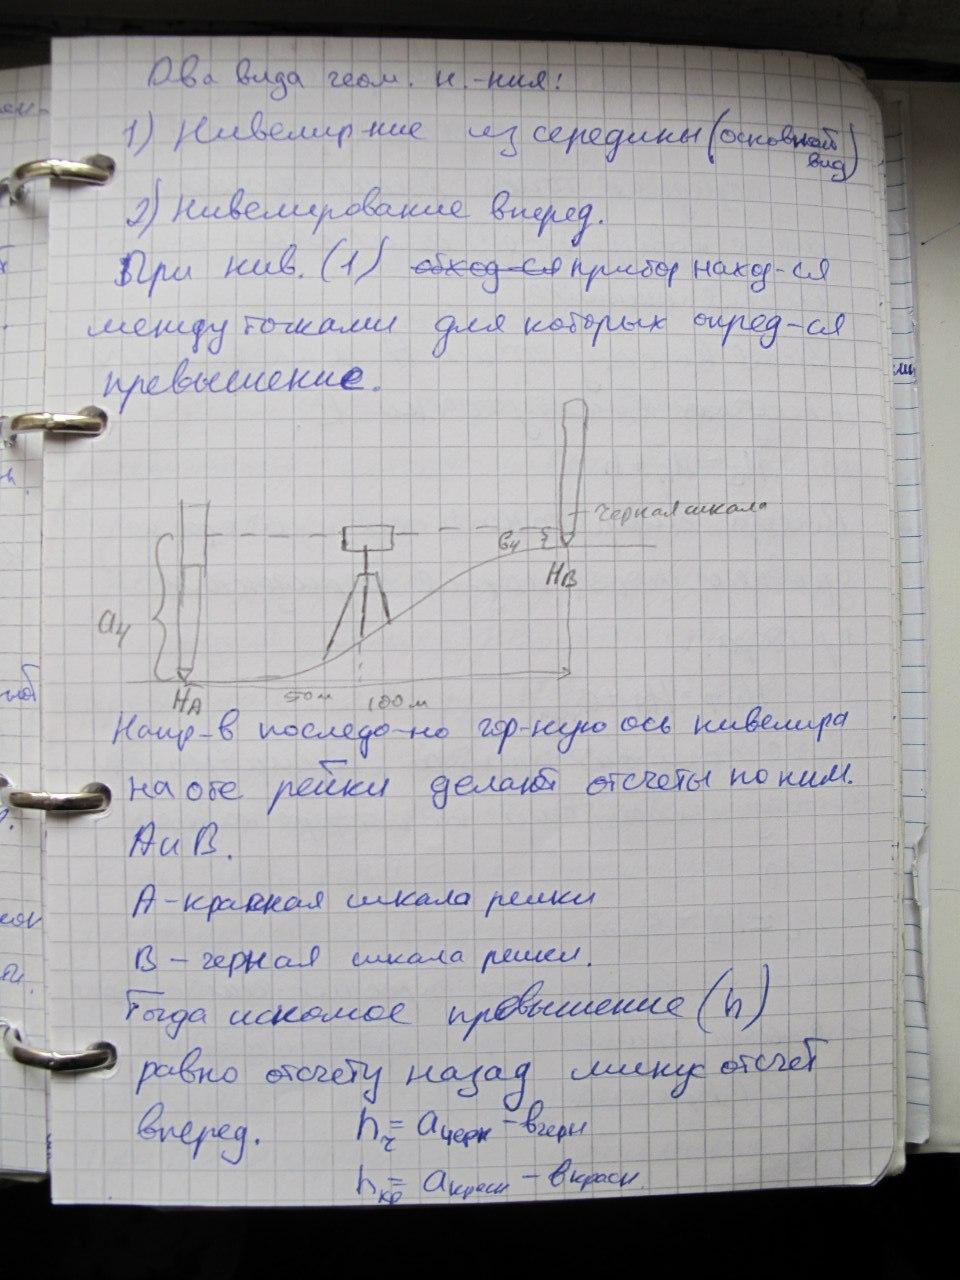 Два вида геом. н.-ния:
1) Нивелир-ние из середины (основной
вид)
2) Нивелирование вперед.
При нив. (1) обход-ся прибор наход-ся
между точками для которых опред-ся
превышение.
черная шкала
bч
HB
aч
HA
50м
100м
Напр-в последо-но гор-ную ось нивелира
на обе рейки делают отсчеты по ним.
А и В.
А - красная шкала рейки
В - черная шкала рейки.
Тогда искомое превышение (h)
равно отсчету назад минус отсчет
вперед. hч = aчерн - вчерн
hкр = aкрасн - вкрасн